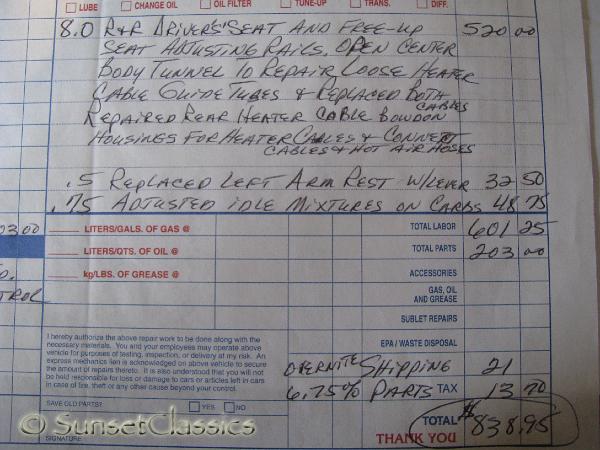 LUBE CHANGE OIL OIL FILTER TUNE-UP TRANS. DIFF.
8.0 R&R DRIVERS SEAT AND FREE-UP 520 00
SEAT ADJUSTING RAILS. OPEN CENTER
BODY TUNNEL TO REPAIR LOOSE HEATER
CABLE GUIDE TUBES & REPLACED BOTH
CABLES
REPAIRED REAR HEATER CABLE BOWDON
HOUSINGS FOR HEATER CABLES & CONNECT
CABLES & HOT AIR HOSES
.5 REPLACED LEFT ARM REST W/LEVER 32 50
.75 ADJUSTED IDLE MIXTURES ON CARBS 48 75
LITERS/GALS. OF GAS @ TOTAL LABOR 601 25
03 00
LITERS/QTS. OF OIL @ TOTAL PARTS 203 00
kg/LBS. OF GREASE @ ACCESSORIES
TROL
GAS, OIL
AND GREASE
SUBLET REPAIRS
I hereby authorize the above repair work to be done along with the
necessary materials. You and your employees may operate above
vehicle for purposes of testing, inspection, or delivery at my risk. An
express mechanics lien is acknowledged on above vehicle to secure
the amount of repairs thereto. It is also understood that you will not
be held responsible for loss or damage to cars or articles left in cars
in case of fire, theft or any other cause beyond your control.
EPA / WASTE DISPOSAL
OVERNITE SHIPPING 21
6.75% PARTS TAX 13 70
SAVE OLD PARTS? YES NO
TOTAL $838.95
THANK YOU
SIGNATURE
© SunsetClassics